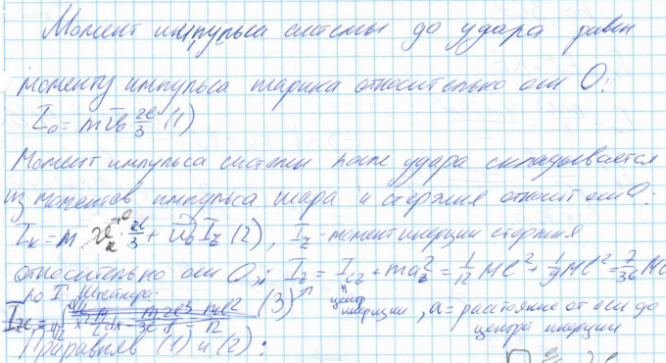 Момент импульса системы до удара равен
моменту импульса шарика относительно оси O:
L₀ = mv₀ 2l/3 (1)
Момент импульса системы после удара складывается
из моментов импульса шара и стержня относит оси O:
I_z - момент инерции стержня
относительно оси O: I_z = I_cz + ma² = 1/12 Ml² + 1/9 Ml² = 7/36 Ml
по т. Штейнера:
(3)
центр инерции, a = расстояние от оси до
центра инерции
Приравняв (1) и (2):